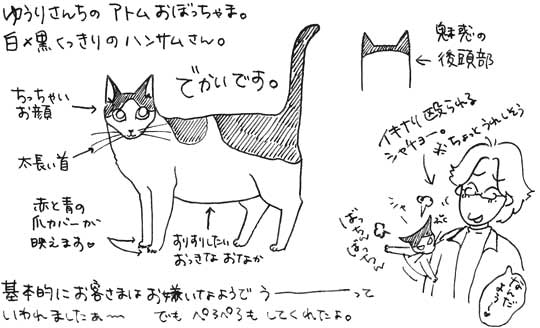 ゆうりさんちの アトム おぼっちゃま。
白×黒くっきりの ハンサムさん。
でかいです。
ちっちゃい
お顔
太長い首
赤と青の
爪カバーが
映えます。
すりすりしたい
おっきな おなか
魅惑の
後頭部
イキナリ 殴られる
シャチョー。
※ちょっとうれしそう
シャー
ばっちん
ばっちん
基本的に お客さまは お嫌いなようで うーーーって
いわれましたぁ〜 でも ぺろぺろも してくれたよ。